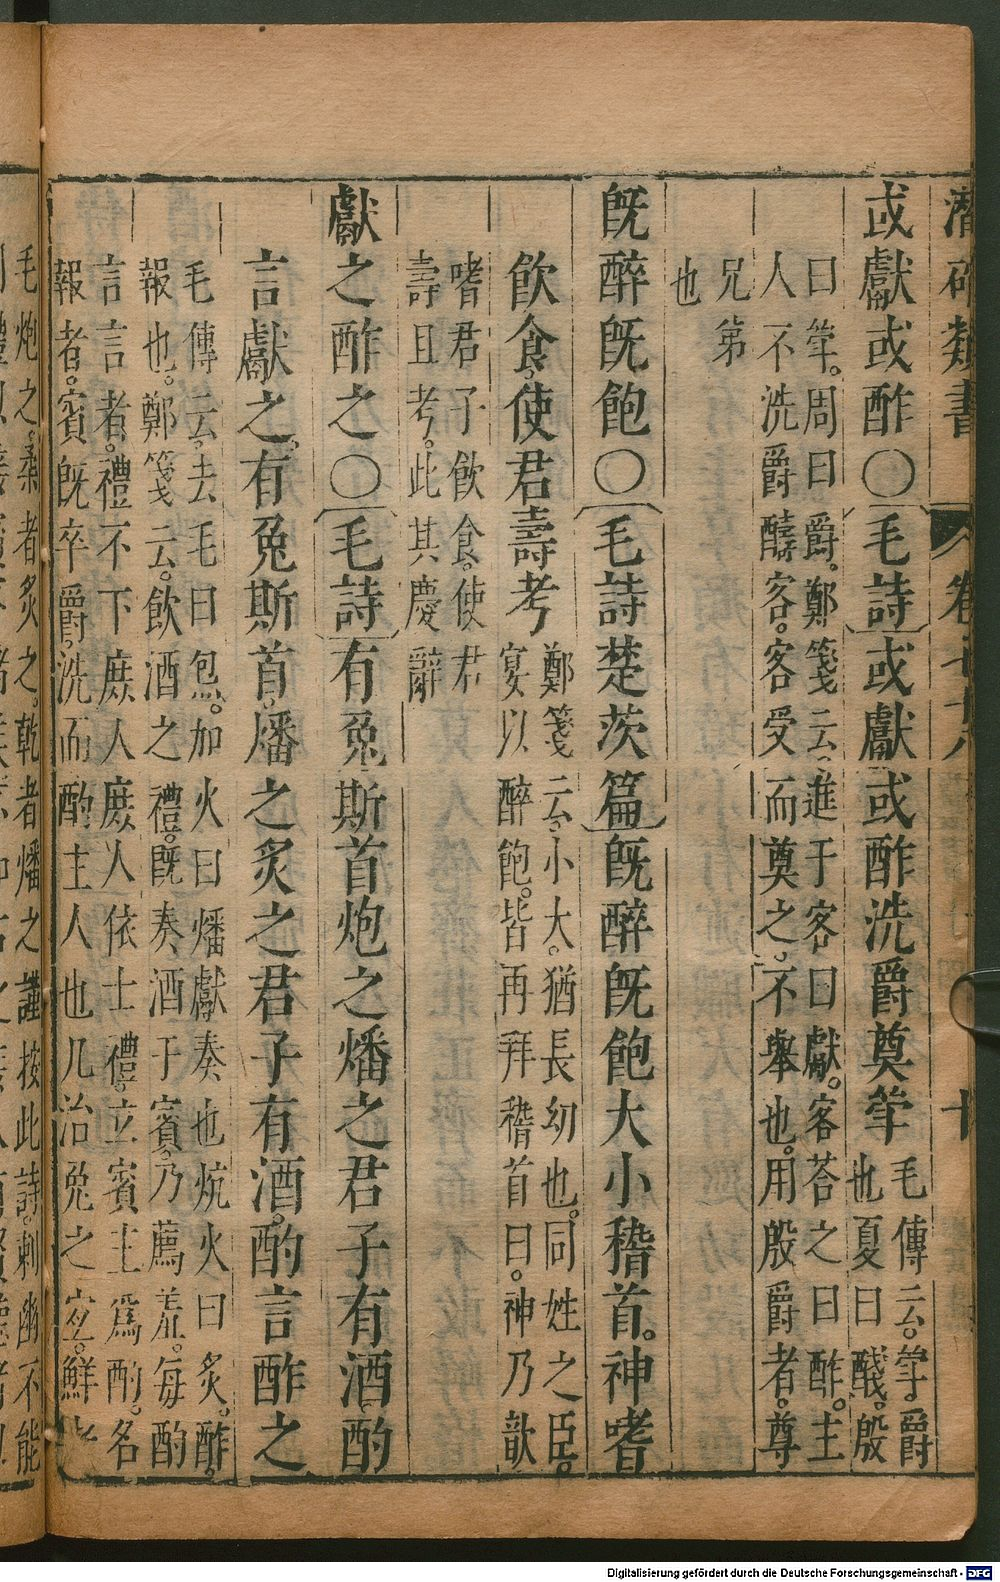 潛確類書 卷 十
或獻或酢〇毛詩或獻或酢洗爵奠斝
毛傳云斝爵
也夏曰醆殷
曰斝周曰爵鄭箋云進于客曰獻客荅之曰酢主
人不洗爵醻客客受而奠之不舉也用殷爵者尊
兄弟
也
既醉既飽〇毛詩楚茨篇既醉既飽大小稽首神嗜
飲食使君壽考
鄭箋云小大猶長幼也同姓之臣
宴以醉飽皆再拜稽首曰神乃歆
嗜君子飲食使君
壽且考此其慶辭
獻之酢之〇毛詩有兔斯首炮之燔之君子有酒酌
言獻之有兔斯首燔之炙之君子有酒酌言酢之
毛傳云去毛曰炰加火曰燔獻奏也炕火曰炙酢
報也鄭箋云飲酒之禮既奏酒于賓乃薦羞每酌
言言者禮不下庶人庶人依士禮立賓主為酌名
報者賓既卒爵洗而酌主人也凡治兔之宜鮮者
毛炮之柔者炙之乾者燔之謹按此詩刺幽不能
Digitalisierung gefördert durch die Deutsche Forschungsgemeinschaft - DFG